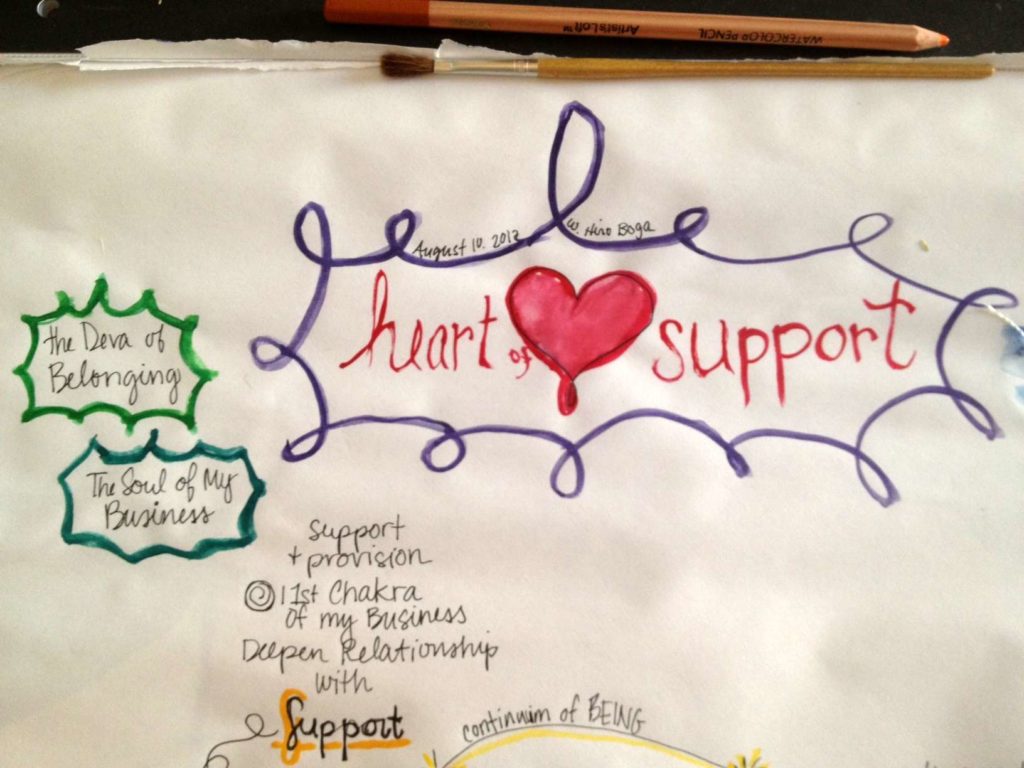 WATERCOLOR PENCIL Artist's Loft™
August 10. 2012
w. Hiro Boga
heart of support
the Deva of
Belonging
The Soul of My
Business
support
+ provision
1st Chakra
of my Business
Deepen Relationship
with
Support
continuum of BEING